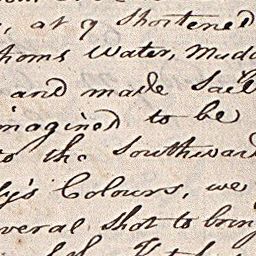 , at 9 Shortened
thoms Water, Mudd
and made Sail
imagined to be
to the Southward
y's Colours, we
everal Shot to bring